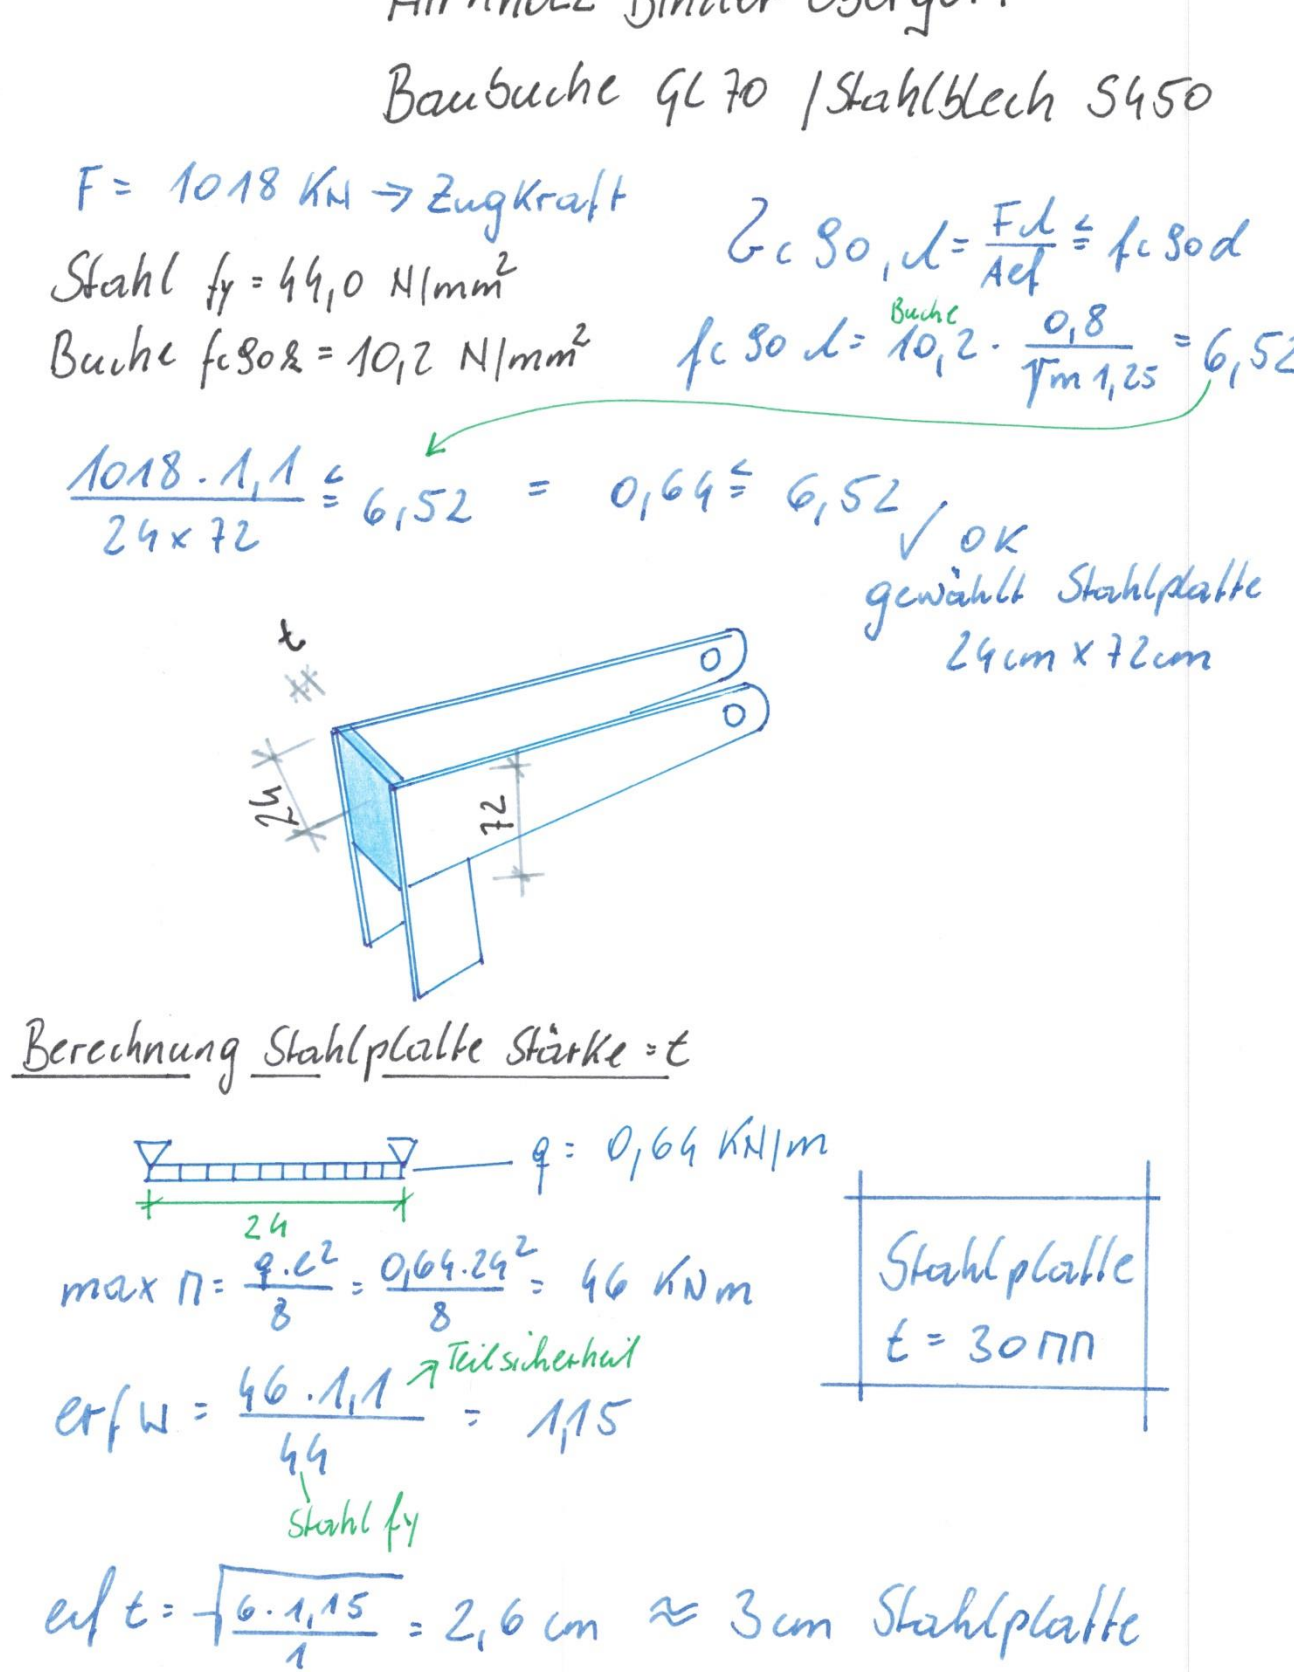 Baubuche GL70 / Stahlblech S450
F = 1018 KN → Zugkraft
Stahl fy = 44,0 N/mm²
Buche fc90k = 10,2 N/mm²
σc90,d = Fd/Aef ≤ fc90d
Buche
fc90d = 10,2 · 0,8/γm 1,25 = 6,52
1018 · 1,1 / 24 x 72 ≤ 6,52 = 0,64 ≤ 6,52 ✓ OK
gewählt Stahlplatte
24cm x 72cm
t
24
72
Berechnung Stahlplatte Stärke = t
q = 0,64 KN/m
24
max M = q·l²/8 = 0,64·24²/8 = 46 KNm
Teilsicherheit
erf W = 46 · 1,1 / 44 = 1,15
Stahl fy
Stahlplatte
t = 30mm
erf t = √(6 · 1,15 / 1) = 2,6 cm ≈ 3cm Stahlplatte